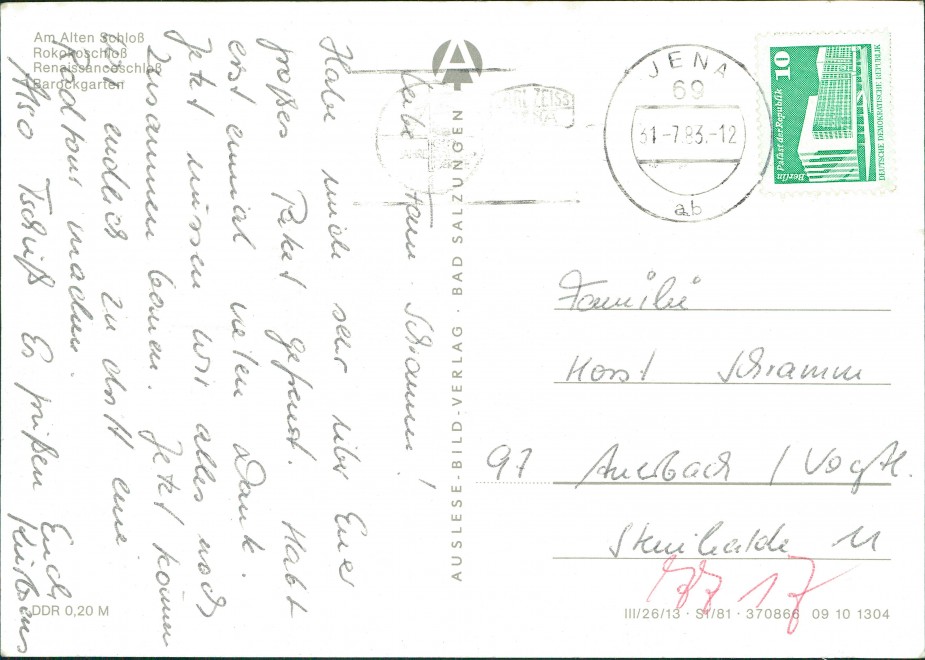 Am Alten Schloß
Rokokoschloß
Renaissanceschloß
Barockgarten
Liebe Fam. Schramm!
Habe mich sehr über Euer
großes Paket gefreut. Habt
erst einmal vielen Dank.
Jetzt müssen wir alles noch
zusammen bauen. Jetzt können
wir endlich zu dritt eine
Radtour machen.
Also Tschüß Es grüßen Euch
AUSLESE-BILD-VERLAG · BAD SALZUNGEN
CARL ZEISS
JENA
JENA
69
31.-7.83.-12
ab
10
Palast der Republik
Berlin
DEUTSCHE DEMOKRATISCHE REPUBLIK
Familie
Horst Schramm
97 Auerbach / Vogtl.
Steinhalde 11
77 17
DDR 0,20 M
III/26/13 · S1/81 · 370866 09 10 1304